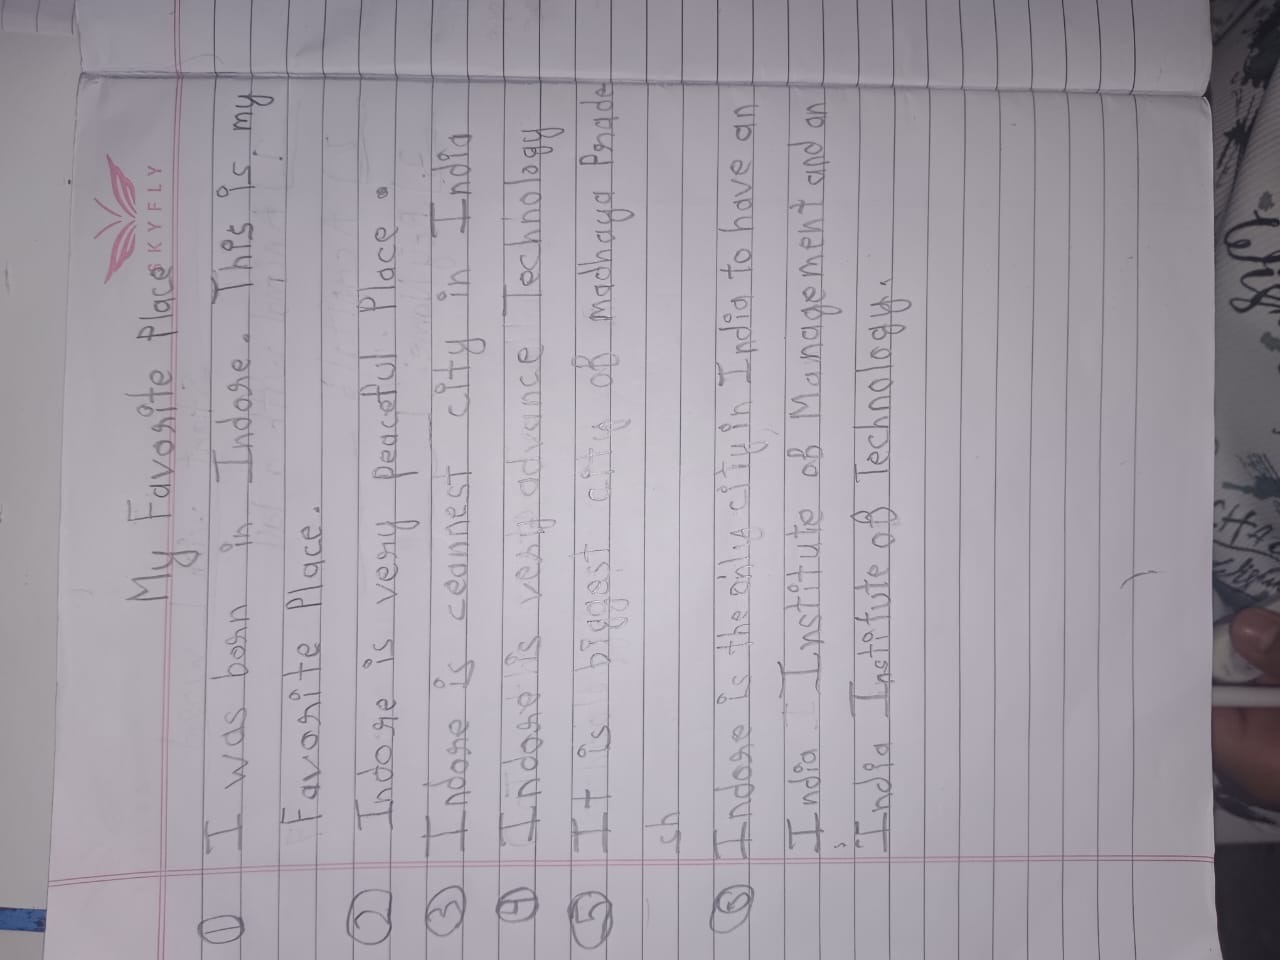 SKYFLY
My Favorite Place
① I was born in Indore. This is my
Favorite Place.
② Indore is very peaceful Place.
③ Indore is ceannest city in India
④ Indore is very advance Technology
⑤ It is biggest city of madhaya Prade
sh
⑥ Indore is the only city in India to have an
India Institute of Management and an
India Institute of Technology.